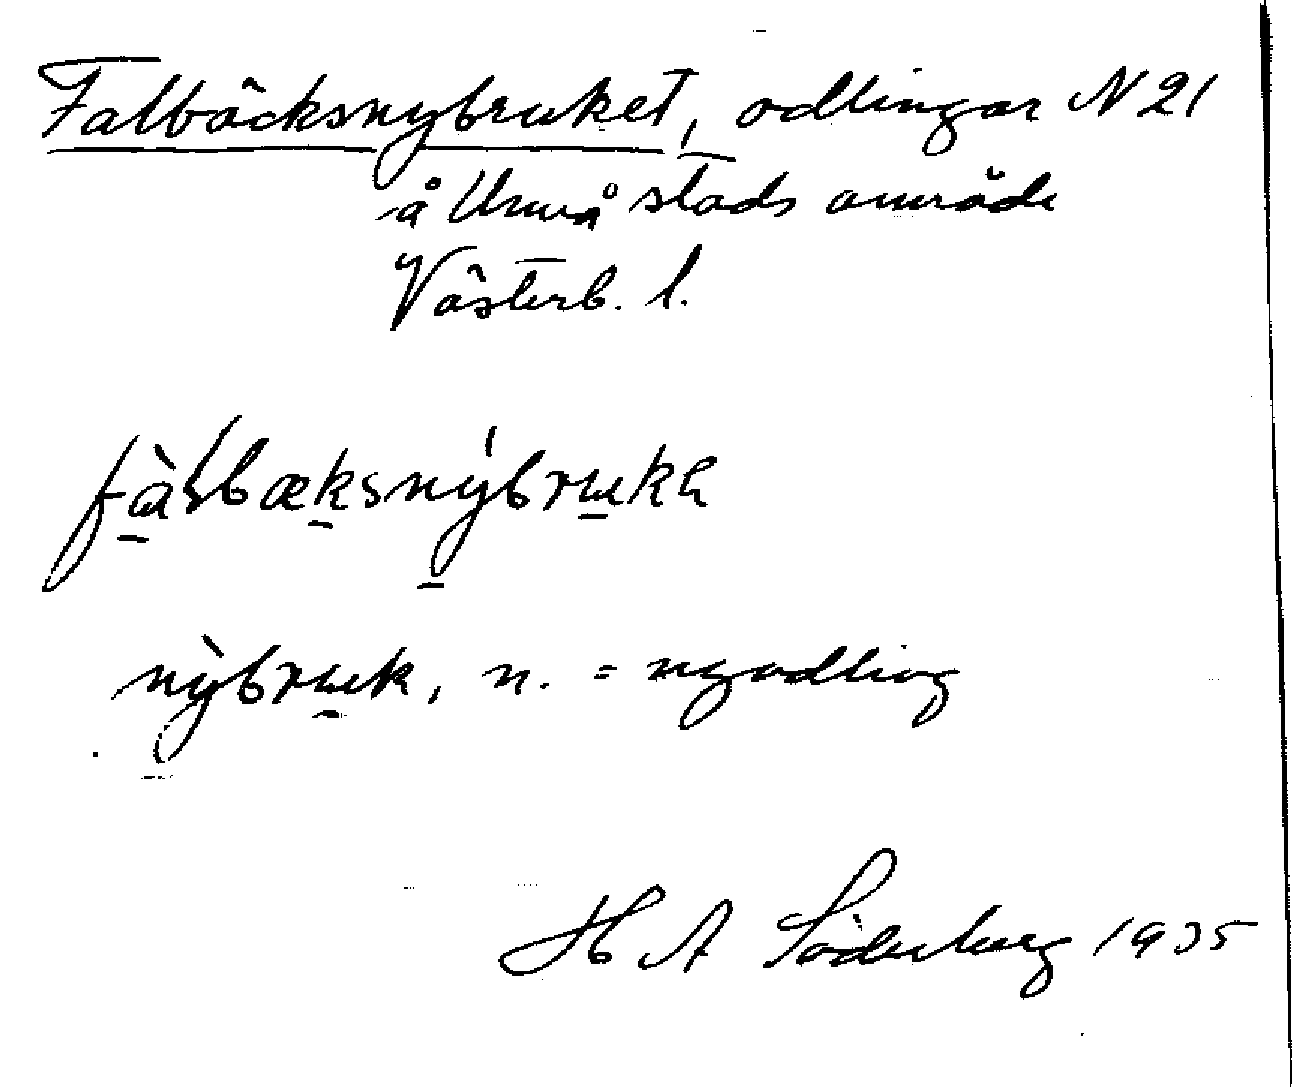 Falbäcksnybruket, odlingar N 21
å Umeå stads område
Västerb. l.
fàlbæksnýbrukɐ
nỳbruk, n. = nyodling
H A Söderberg 1935